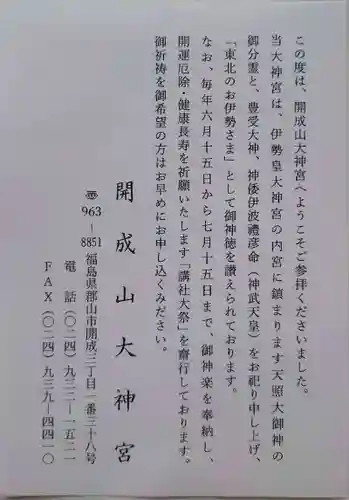 この度は、開成山大神宮へようこそご参拝くださいました。
当大神宮は、伊勢皇大神宮の内宮に鎮まります天照大御神の
御分霊と、豊受大神、神倭伊波禮彦命（神武天皇）をお祀り申し上げ、
「東北のお伊勢さま」として御神徳を讃えられております。
なお、毎年六月十五日から七月十五日まで、御神楽を奉納し、
開運厄除・健康長寿を祈願いたします「講社大祭」を齋行しております。
御祈祷を御希望の方はお早めにお申し込みください。
開成山大神宮
〒963－8851 福島県郡山市開成三丁目一番三十八号
電話（〇二四）九三二―一五二一
ＦＡＸ（〇二四）九三九―四四一〇